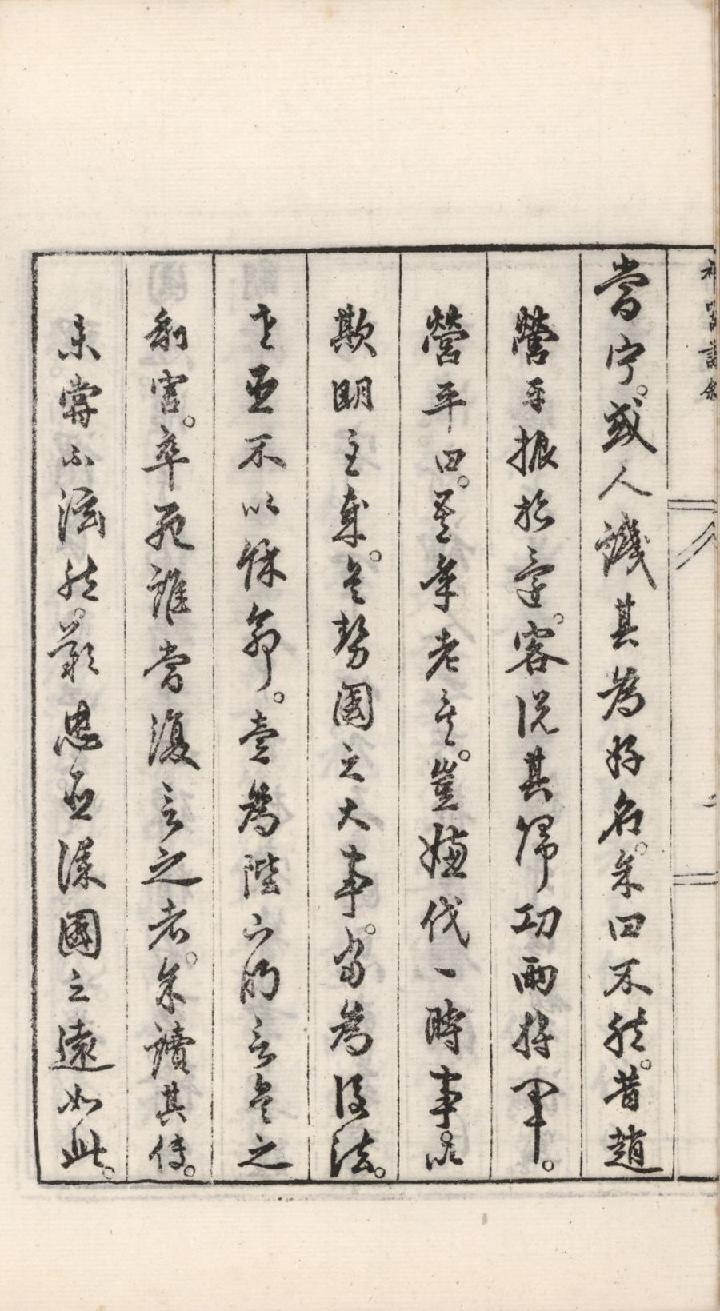 當宁。或人譏其為好名。余曰不然。昔趙
營平振旅還。客說其歸功兩將軍。
營平曰。吾年老矣。豈嫌伐一時事。以
欺明主哉。兵勢國之大事。當為後法。
老臣不以餘命。壹為陛下明言兵之
利害。卒死誰當復言之者。余讀其傳。
未嘗不潸然。歎忠臣謀國之遠如此。